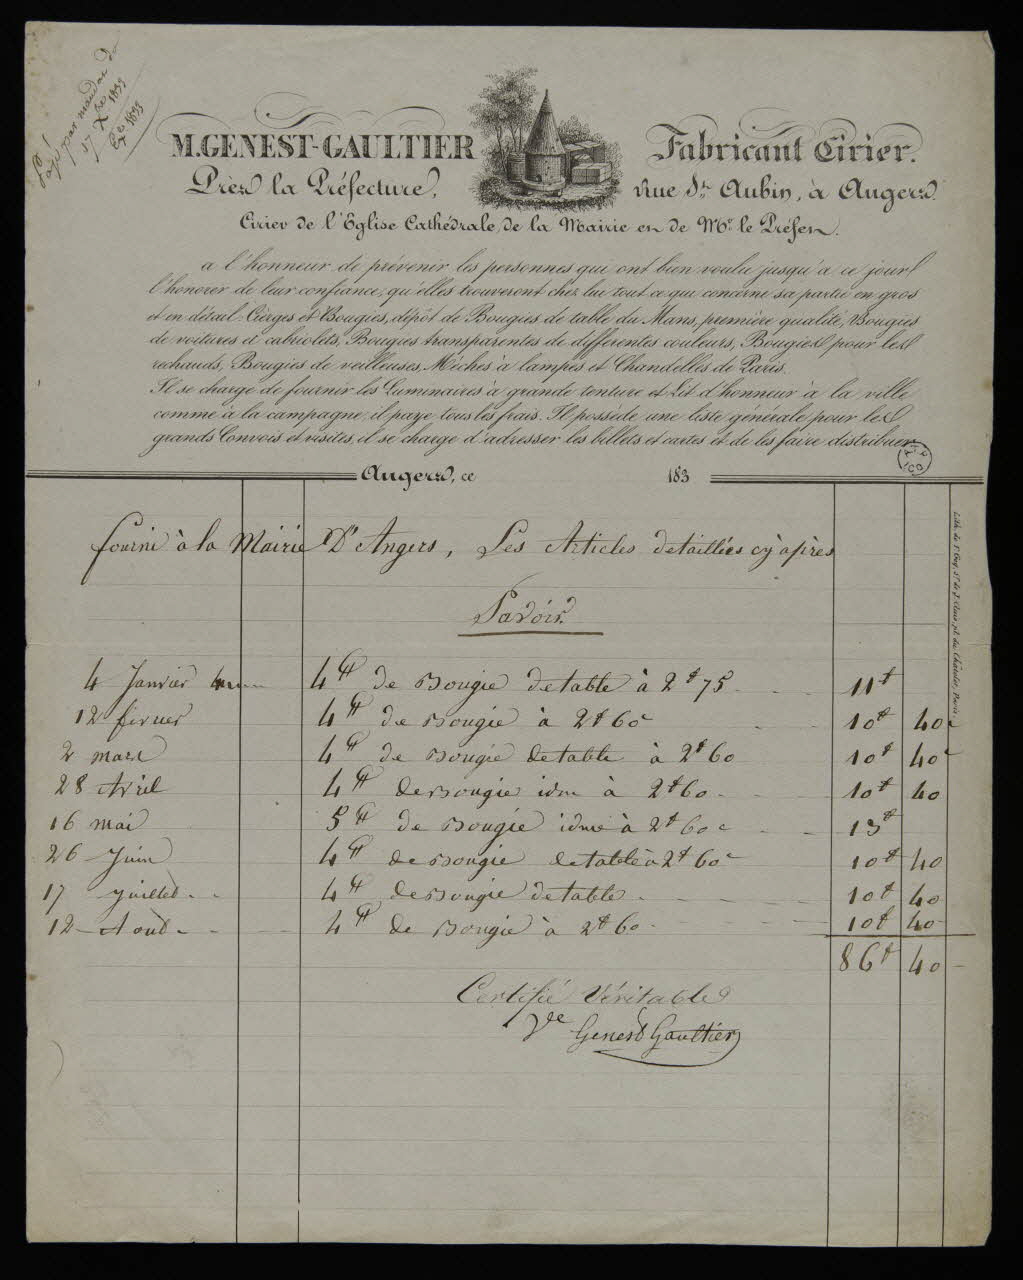 Payé par mandat du
17 Xbre 1835
Ex 1835
M. GENEST-GAULTIER
Fabricant Cirier.
Près la Préfecture,
Rue St. Aubin, à Angers.
Cirier de l'Eglise Cathédrale, de la Mairie et de Mr. le Préfet.
a l'honneur de prévenir les personnes qui ont bien voulu jusqu'à ce jour
l'honorer de leur confiance, qu'elles trouveront chez lui tout ce qui concerne sa partie en gros
et en détail. Cierges et Bougies, dépôt de Bougies de table du Mans, première qualité, Bougies
de voitures et cabriolets, Bougies transparentes de différentes couleurs, Bougies pour les
rechauds, Bougies de veilleuses, Mèches à lampes et Chandelles de Paris.
Il se charge de fournir les Luminaires à grande tenture et Lit d'honneur à la ville
comme à la campagne, il paye tous les frais. Il possède une liste générale pour les
grands Convois et visites, il se charge d'adresser les billets et cartes et de les faire distribuer
Angers, ce 183
fourni à la Mairie D'Angers, Les Articles detaillées cy après
Savoir
4 Janvier 4# de Bougie de table à 2# 75 11#
12 fevrier 4# de Bougie à 2# 60c 10# 40c
2 mars 4# de Bougie de table à 2# 60 10# 40c
28 Avril 4# de Bougie idm à 2# 60 10# 40
16 mai 5# de Bougie idme à 2# 60c 13#
26 Juin 4# de Bougie de table à 2# 60c 10# 40
17 Juillet 4# de Bougie de table 10# 40
12 Aout 4# de Bougie à 2# 60 10# 40
86# 40
Certifié Véritable
Ve Genest Gaultier